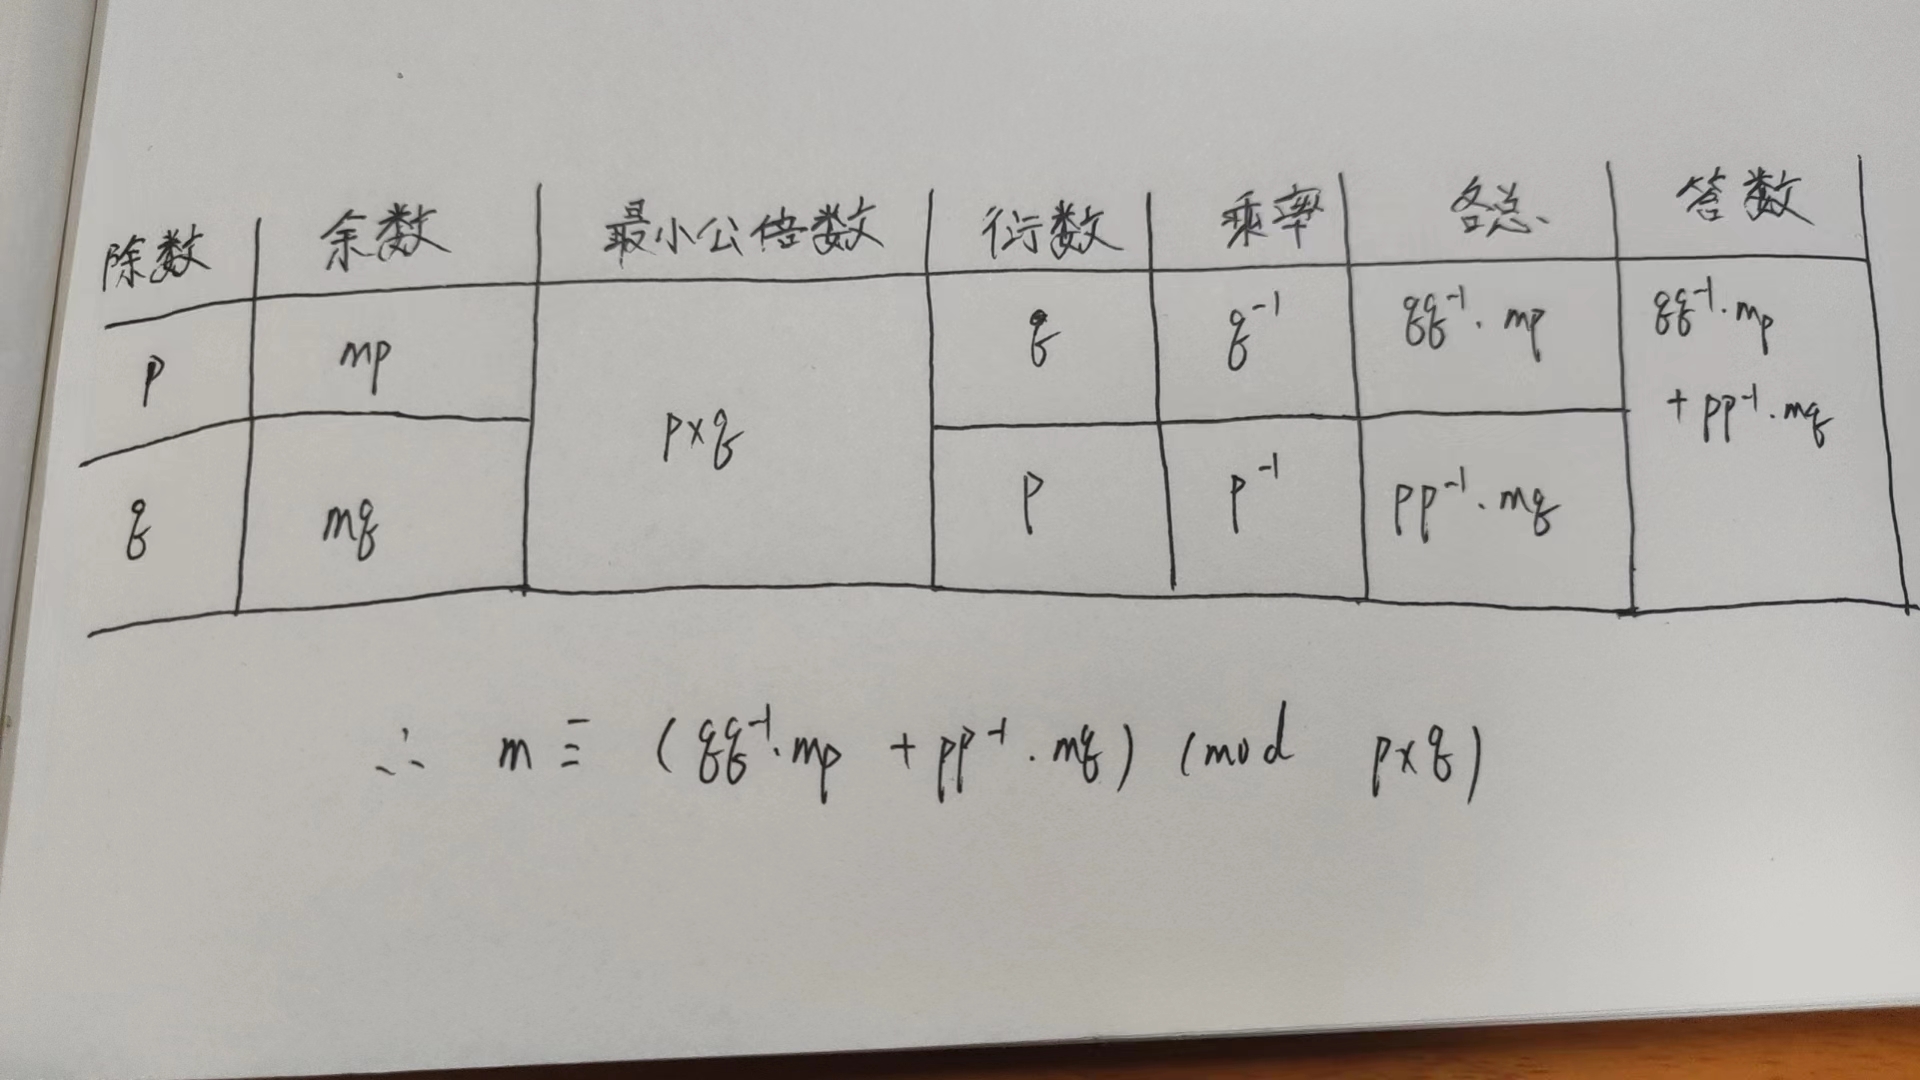 除数 余数 最小公倍数 衍数 乘率 各总 答数
p mp p×q q q⁻¹ qq⁻¹·mp qq⁻¹·mp
+ pp⁻¹·mq
q mq p p⁻¹ pp⁻¹·mq
∴ m ≡ (qq⁻¹·mp + pp⁻¹·mq) (mod p×q)